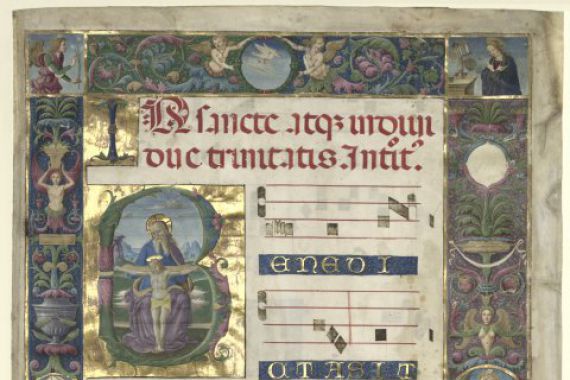 IN sancte atqꝫ indiui
due trinitatis. Introit⁹.
BENEDI
CTA SIT